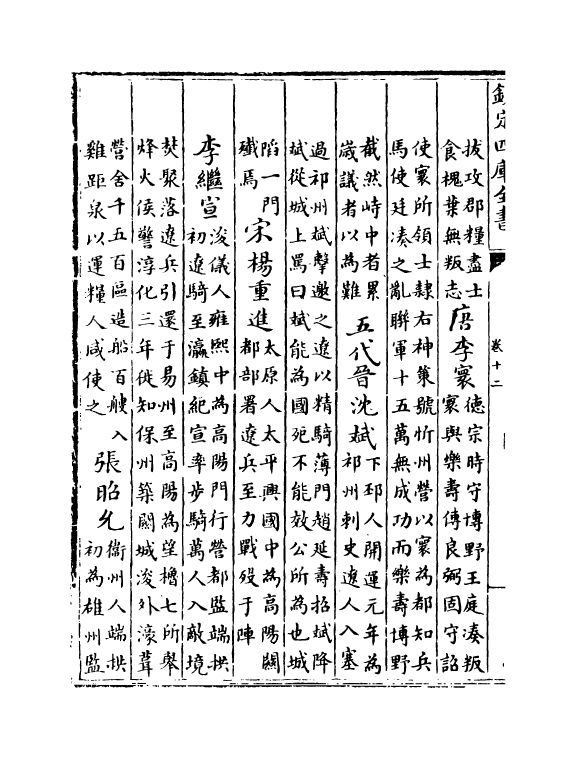 欽定四庫全書
卷十二
拔攻郡糧盡士
食槐葉無叛志
唐李寰
德宗時守博野王庭湊叛
寰與樂壽傅良弼固守詔
使寰所領士隸右神策號忻州營以寰為都知兵
馬使廷湊之亂聯軍十五萬無成功而樂壽博野
截然峙中者累
歲議者以為難
五代晉沈斌
下邳人開運元年為
祁州刺史遼人入塞
過祁州斌擊邀之遼以精騎薄門趙延壽招斌降
斌從城上罵曰斌能為國死不能效公所為也城
陷一門
殲焉
宋楊重進
太原人太平興國中為高陽關
都部署遼兵至力戰歿于陣
李繼宣
浚儀人雍熙中為高陽門行營都監端拱
初遼騎至瀛鎮紀宣率步騎萬人入敵境
焚聚落遼兵引還于易州至高陽為望櫓七所舉
烽火侯警淳化三年徙知保州築關城浚外濠葺
營舍千五百區造船百艘入
雞距泉以運糧人咸使之
張昭允
衞州人端拱
初為雄州監